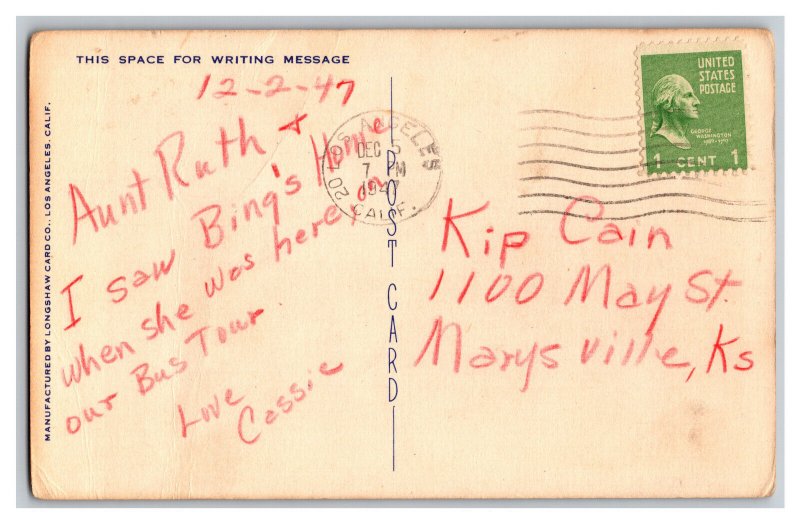 THIS SPACE FOR WRITING MESSAGE
12-2-47
Aunt Ruth +
I saw Bing's Home
when she was here, on
our Bus Tour
Love
Cassie
MANUFACTURED BY LONGSHAW CARD CO., LOS ANGELES, CALIF.
POST CARD
LOS ANGELES
20
DEC 5
7 PM
1947
CALIF.
UNITED
STATES
POSTAGE
GEORGE
WASHINGTON
1789-1797
1 CENT 1
Kip Cain
1100 May St.
Marysville, Ks